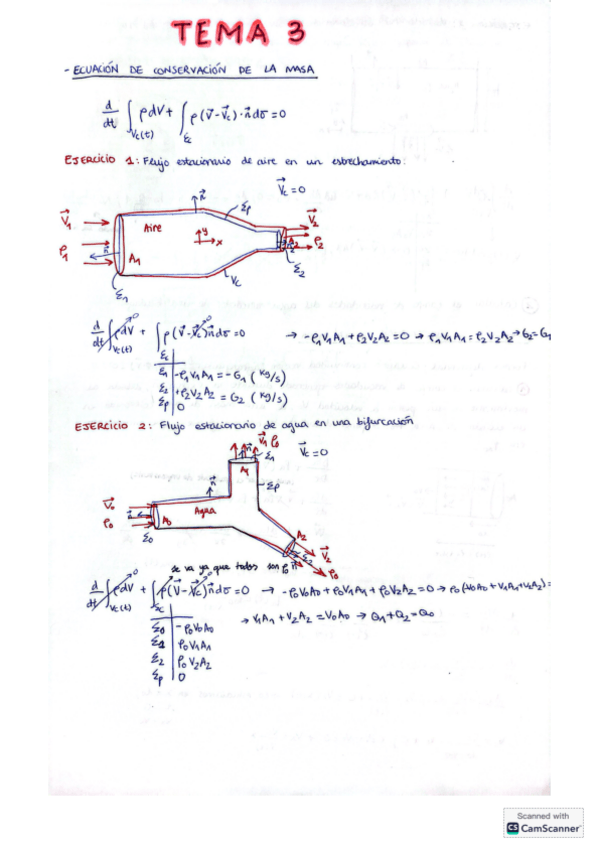 TEMA 3
- ECUACIÓN DE CONSERVACIÓN DE LA MASA
d/dt ∫Vc(t) ρdV + ∫Σc ρ(v⃗-v⃗c)·n⃗dσ=0
EJERCICIO 1: Flujo estacionario de aire en un estrechamiento:
V⃗c=0
n⃗ Σp
V⃗1 Aire y x V⃗2
ρ1 n⃗ A1 A2 n⃗ ρ2
Σ1 Vc Σ2
d/dt ∫Vc(t) ρdV + ∫Σc ρ(V⃗-V⃗c)n⃗dσ=0 → -ρ1V1A1+ρ2V2A2=0 → ρ1V1A1=ρ2V2A2 → G2=G1
Σ1 -ρ1V1A1=-G1 (kg/s)
Σ2 +ρ2V2A2=G2 (kg/s)
Σp 0
EJERCICIO 2: Flujo estacionario de agua en una bifurcación
n⃗ V⃗1 ρ0
Σ1 V⃗c=0
A1
n⃗ Σp
V⃗0
n⃗ A0 Agua A2
ρ0 V⃗2
Σ0 Σ2
n⃗ ρ0
se va ya que todos son ρ0
d/dt ∫Vc(t) ρdV + ∫Σc ρ(V⃗-V⃗c)n⃗dσ=0 → -ρ0V0A0+ρ0V1A1+ρ0V2A2=0 → ρ0(-V0A0+V1A1+V2A2)=
Σ0 -ρ0V0A0 → V1A1+V2A2=V0A0 → Q1+Q2=Q0
Σ1 ρ0V1A1
Σ2 ρ0V2A2
Σp 0
Scanned with
CS CamScanner